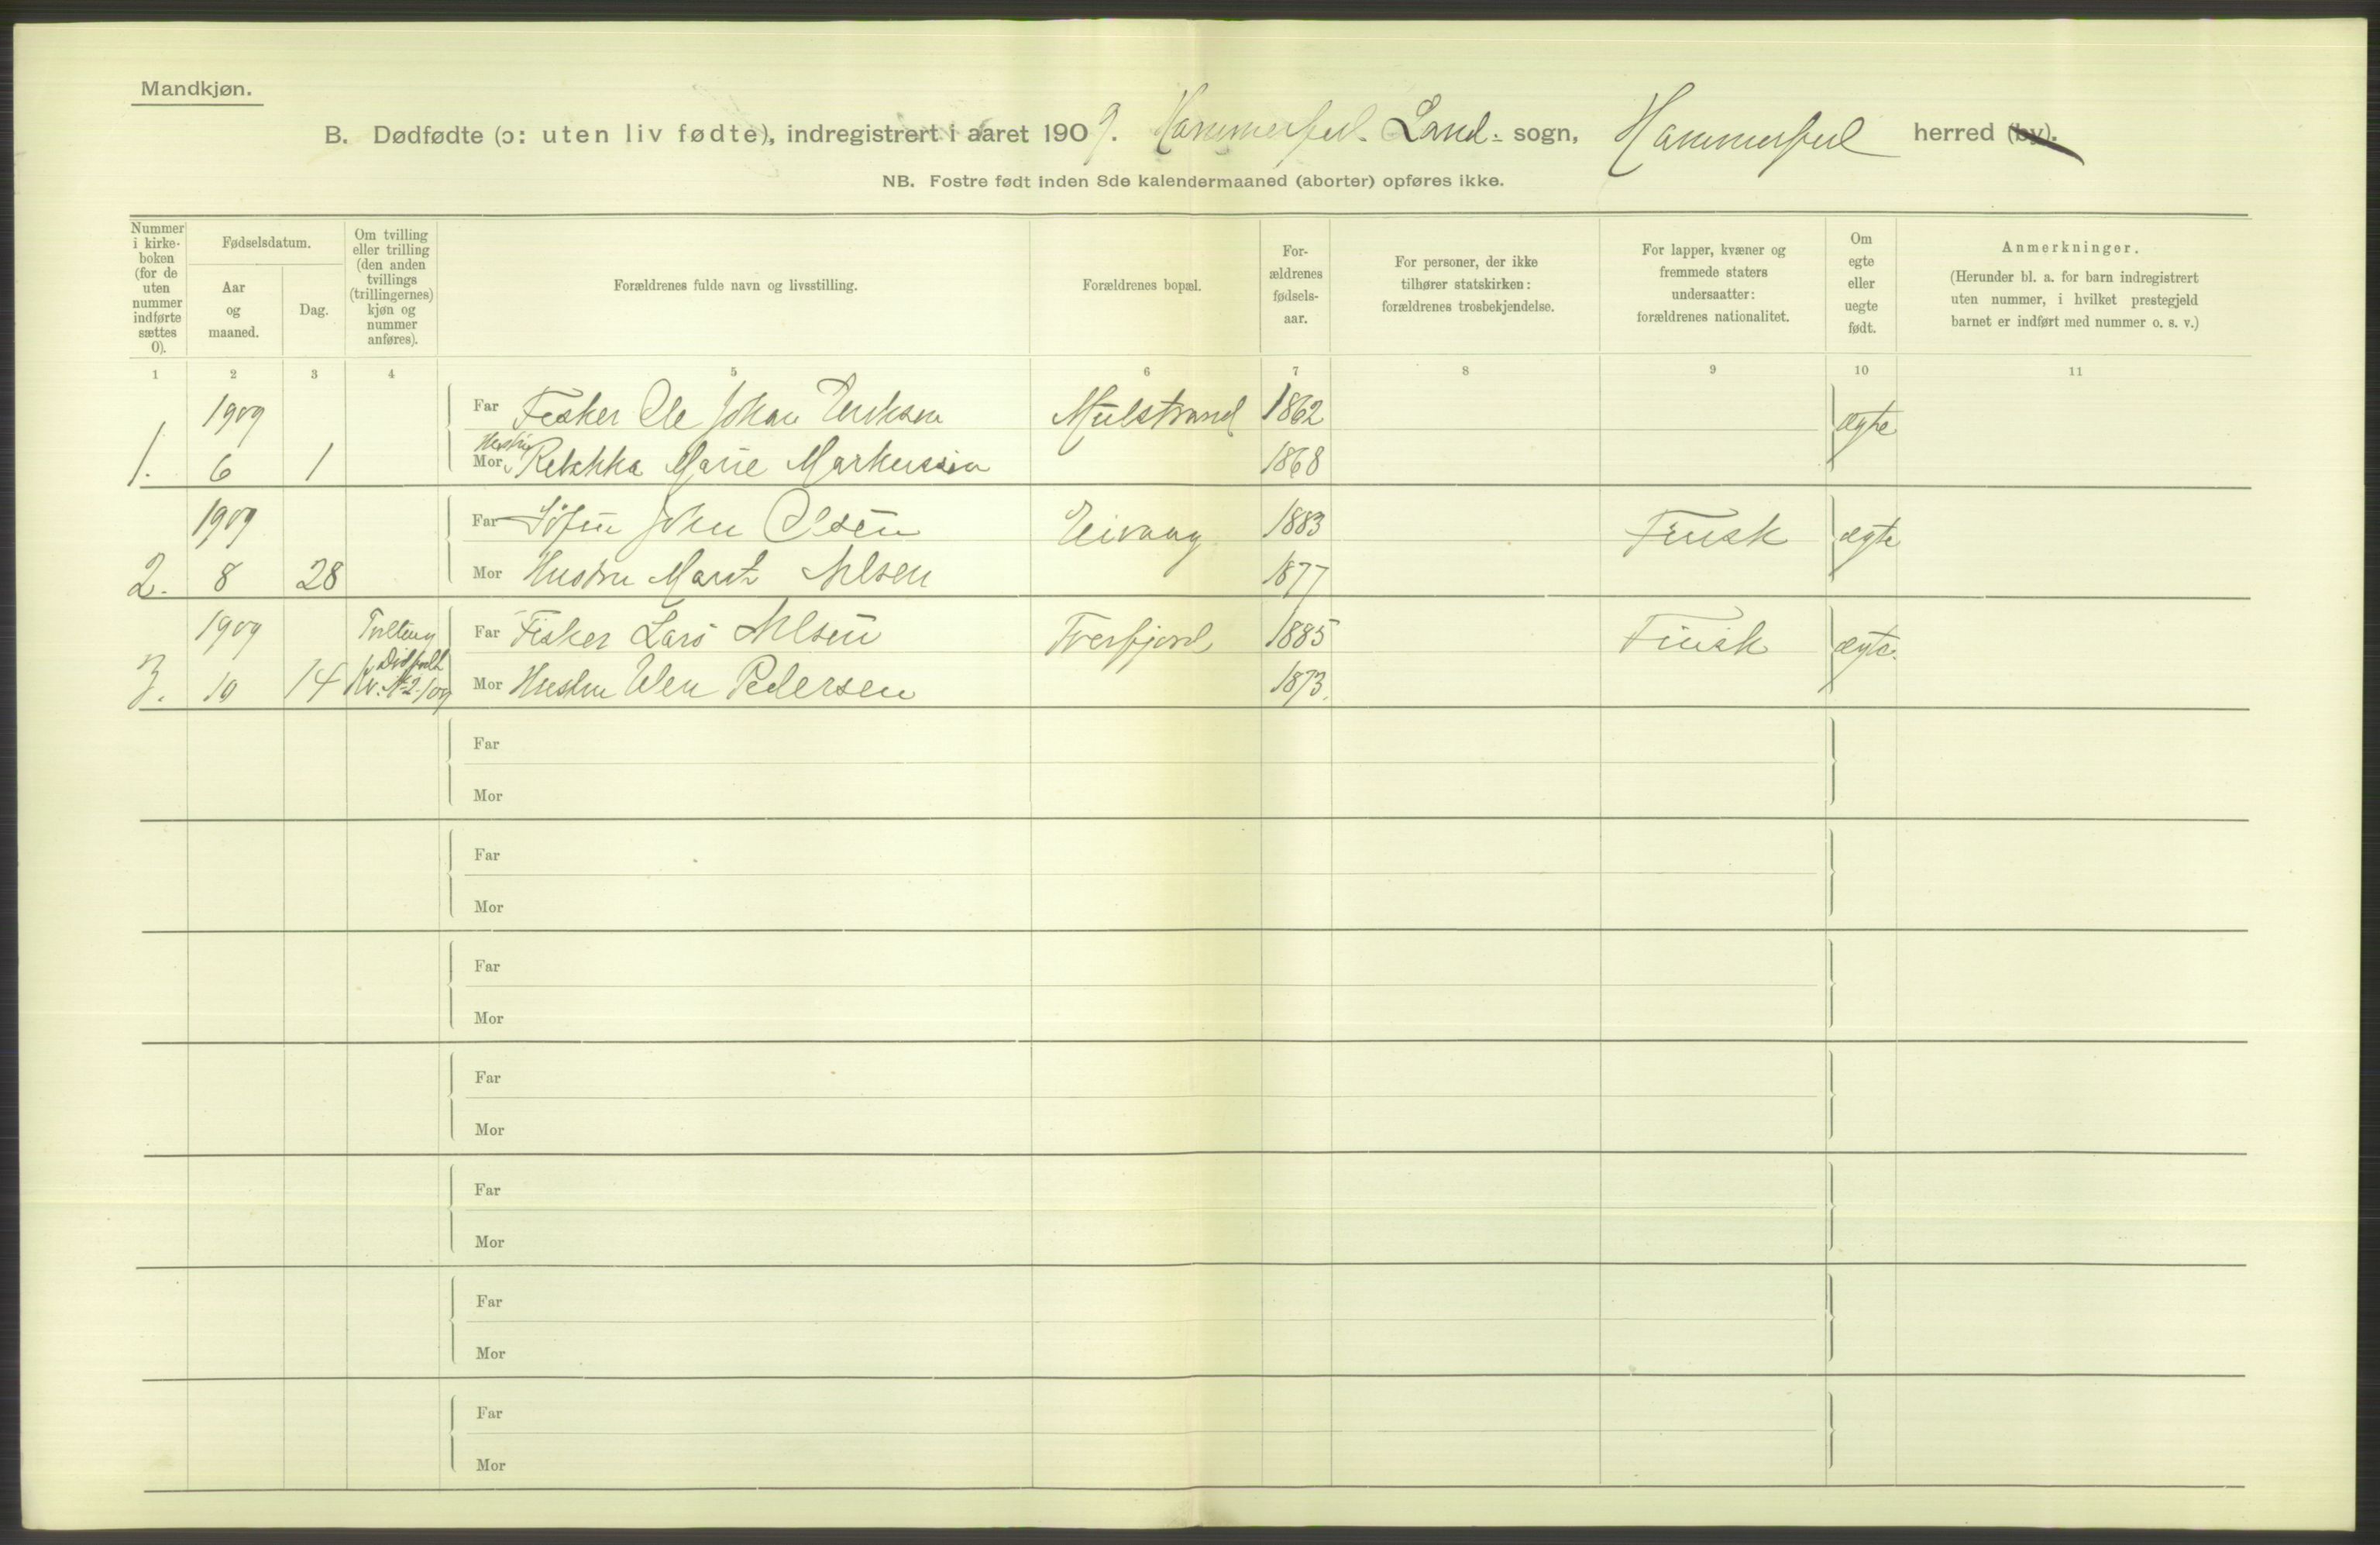 Mandkjøn.
B. Dødfødte (ɔ: uten liv fødte), indregistrert i aaret 1909. Hammerfest Land- sogn, Hammerfest herred (by).
NB. Fostre født inden 8de kalendermaaned (aborter) opføres ikke.
Nummer i kirke-boken (for de uten nummer indførte sættes 0).
Fødselsdatum.
Aar og maaned.
Dag.
Om tvilling eller trilling (den anden tvillings (trillingernes) kjøn og nummer anføres).
Forældrenes fulde navn og livsstilling.
Forældrenes bopæl.
For-ældrenes fødsels-aar.
For personer, der ikke tilhører statskirken: forældrenes trosbekjendelse.
For lapper, kvæner og fremmede staters undersaatter: forældrenes nationalitet.
Om egte eller uegte født.
Anmerkninger.
(Herunder bl. a. for barn indregistrert uten nummer, i hvilket prestegjeld barnet er indført med nummer o. s. v.)
1 2 3 4 5 6 7 8 9 10 11
1909 Far Fisker Ole Johan Eriksen Mylstrand 1862 ægte
1. 6 1 Mor Hustru Rebekka Marie Markussen 1868
1909 Far John Olsen Eivaag 1883 Finsk ægte
2. 8 28 Mor Hustru Marit Nilsen 1877
1909 Tvilling Far Fisker Lars Nilsen Tverfjord 1885 Finsk ægte.
Dødfødt
3. 10 14 Kv. № 2. 109 Mor Hustru Elen Pedersen 1873.
Far
Mor
Far
Mor
Far
Mor
Far
Mor
Far
Mor
Far
Mor
Far
Mor